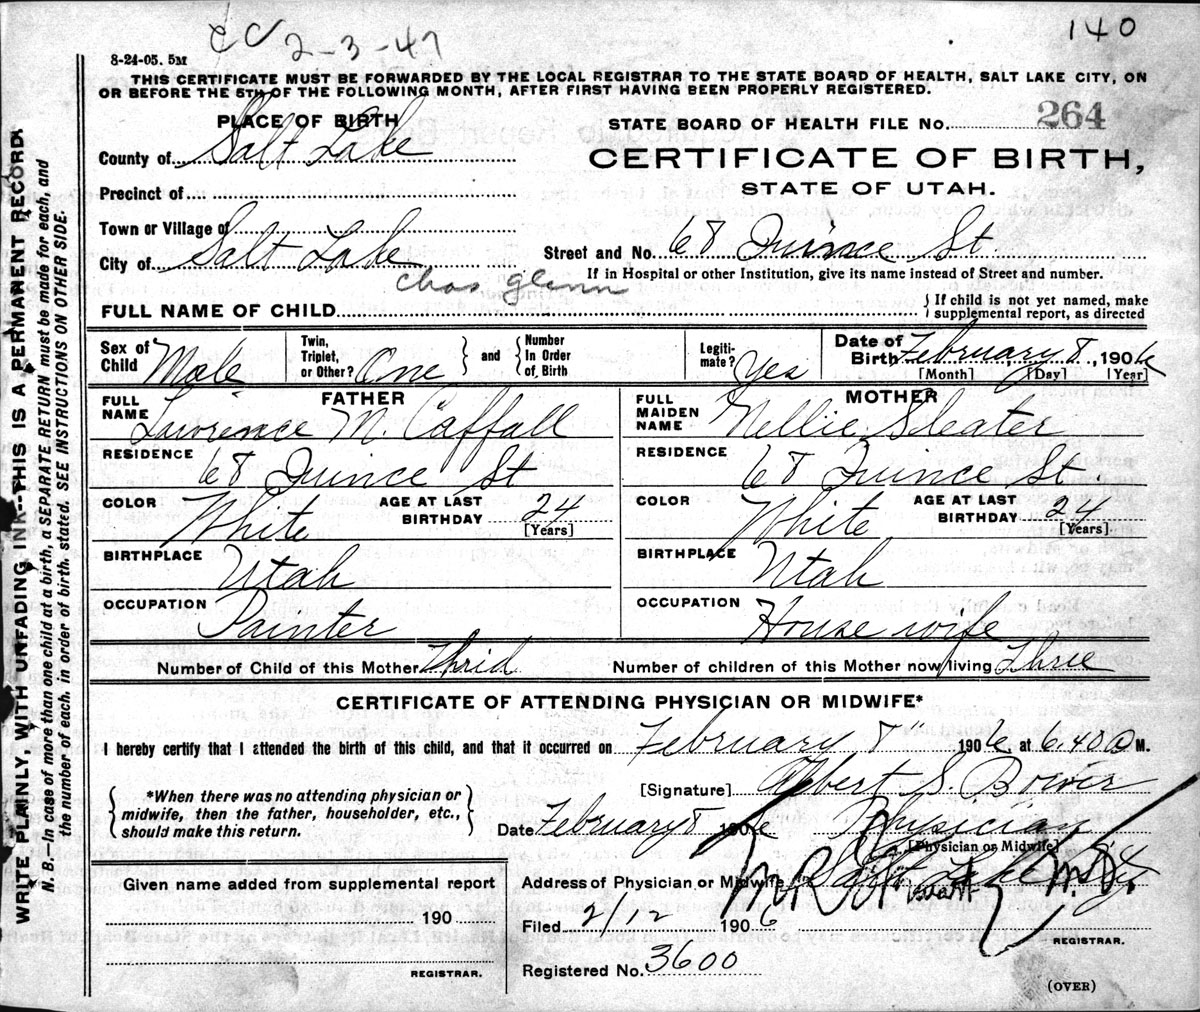 CC 2-3-47
140
8-24-05. 5M
THIS CERTIFICATE MUST BE FORWARDED BY THE LOCAL REGISTRAR TO THE STATE BOARD OF HEALTH, SALT LAKE CITY, ON
OR BEFORE THE 5TH OF THE FOLLOWING MONTH, AFTER FIRST HAVING BEEN PROPERLY REGISTERED.
PLACE OF BIRTH
STATE BOARD OF HEALTH FILE No. 264
County of Salt Lake
CERTIFICATE OF BIRTH,
STATE OF UTAH.
Precinct of
Town or Village of
City of Salt Lake
Street and No. 68 Quince St.
If in Hospital or other Institution, give its name instead of Street and number.
FULL NAME OF CHILD Chas glenn
{ If child is not yet named, make
supplemental report, as directed
Sex of Child Male
Twin, Triplet, or Other? One } and { Number In Order of Birth
Legiti-mate? Yes
Date of Birth February 8, 1906
[Month] [Day] [Year]
FATHER
FULL NAME Lawrence M. Caffall
RESIDENCE 68 Quince St
COLOR White AGE AT LAST BIRTHDAY 24 [Years]
BIRTHPLACE Utah
OCCUPATION Painter
MOTHER
FULL MAIDEN NAME Nellie Sleater
RESIDENCE 68 Quince St.
COLOR White AGE AT LAST BIRTHDAY 24 [Years]
BIRTHPLACE Utah
OCCUPATION House wife
Number of Child of this Mother Thrid
Number of children of this Mother now living Three
CERTIFICATE OF ATTENDING PHYSICIAN OR MIDWIFE*
I hereby certify that I attended the birth of this child, and that it occurred on February 8" 1906, at 6.40 a M.
{ *When there was no attending physician or
midwife, then the father, householder, etc.,
should make this return. }
[Signature] Albert S. Bower
Date February 8 1906 Physician
[Physician or Midwife]
Given name added from supplemental report
190
REGISTRAR.
Address of Physician or Midwife Salt Lake City
Filed 2/12 1906
REGISTRAR.
Registered No. 3600
(OVER)
WRITE PLAINLY, WITH UNFADING INK--THIS IS A PERMANENT RECORD.
N. B.—In case of more than one child at a birth, a SEPARATE RETURN must be made for each, and
the number of each, in order of birth, stated. SEE INSTRUCTIONS ON OTHER SIDE.